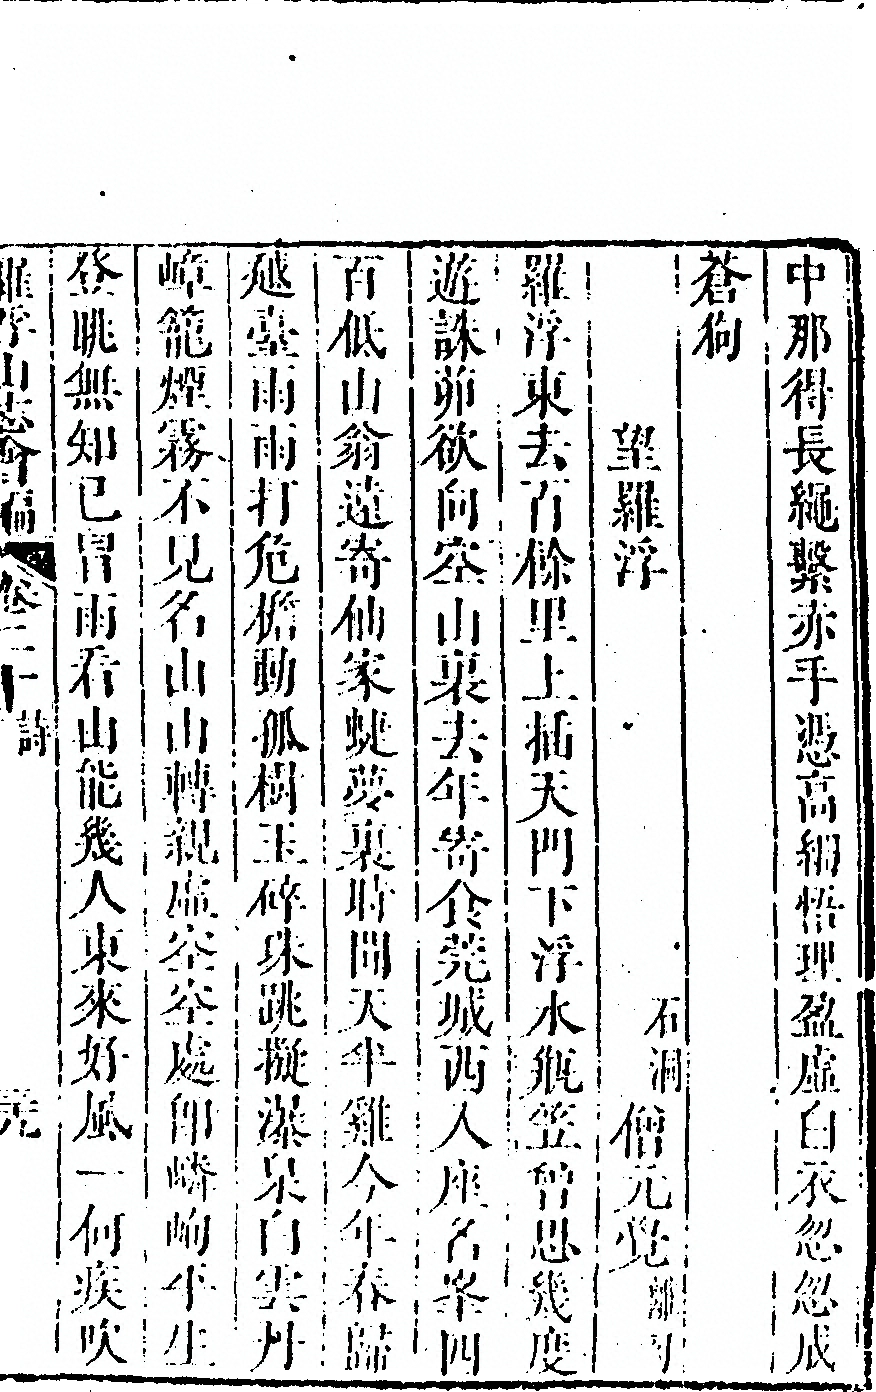 中那得長繩繫赤手憑高細悟理盈虛白衣忽忽成
蒼狗
望羅浮
石洞僧元覺
羅浮東去百餘里上插天門下浮水瓶笠曾思幾度
遊誅茆欲向空山裏去年寄食莞城西人座名峯四
百低山翁遠寄仙家蜨夢裏時聞天半雞今年春歸
越臺雨雨打危檐動孤樹玉碎珠跳擬瀑泉白雲丹
嶂籠煙霧不見名山山轉親虛空空處卽嶙峋平生
登眺無知已冒雨看山能幾人東來好風一何疾吹
羅浮山志會編
卷二十 詩